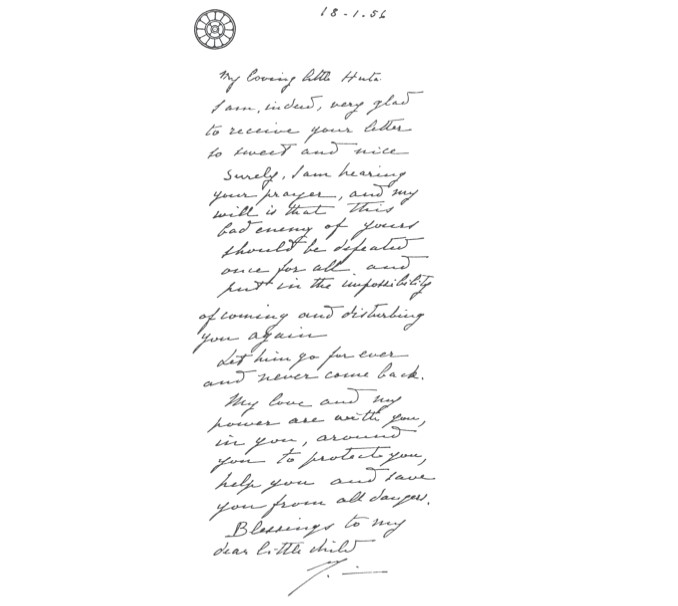 18-1.56
My loving little Huta.
I am, indeed, very glad
to receive your letter
so sweet and nice
Surely, I am hearing
your prayer, and my
will is that this
bad enemy of yours
should be defeated
once for all and
put in the impossibility
of coming and disturbing
you again
Let him go for ever
and never come back.
My love and my
power are with you,
in you, around
you to protect you,
help you and save
you from all dangers.
Blessings to my
dear little child